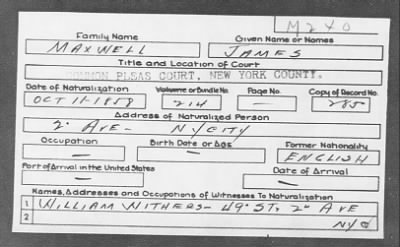 M240
Family Name Given Name or Names
MAXWELL JAMES
Title and Location of Court
COMMON PLEAS COURT, NEW YORK COUNTY.
Date of Naturalization Volume or Bundle No. Page No. Copy of Record No.
OCT 11-1858 214 — 285
Address of Naturalized Person
2" AVE- NYCITY
Occupation Birth Date or Age Former Nationality
— — ENGLISH
Port of Arrival in the United States Date of Arrival
— —
Names, Addresses and Occupations of Witnesses To Naturalization
1 WILLIAM WITHERS- 49" ST. 2" AVE
2 NYC